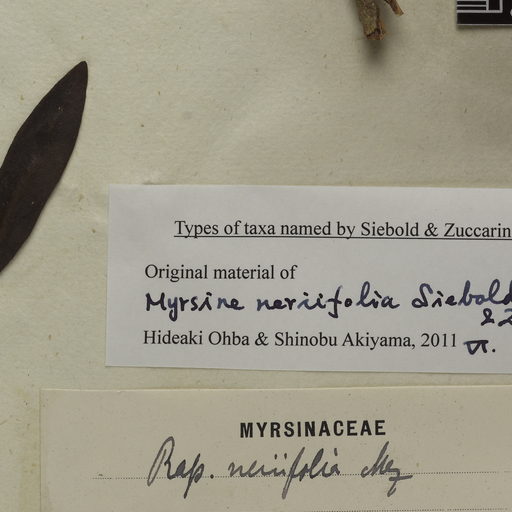 Types of taxa named by Siebold & Zuccarin
Original material of
Myrsine neriifolia Siebold
&
Hideaki Ohba & Shinobu Akiyama, 2011 VI.
MYRSINACEAE
Rap. neriifolia Mez